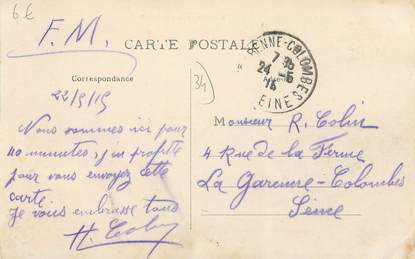 6€
F.M.
CARTE POSTALE
RENNE-COLOMBES
7 35
24 -5
15
SEINE
34
Correspondance
22/5/15
Nous sommes ici pour
40 minutes, j'en profite
pour vous envoyez cette
carte
Je vous embrasse tous
H. Colin
Monsieur R. Colin
4 Rue de la Ferme
La Garenne-Colombes
Seine